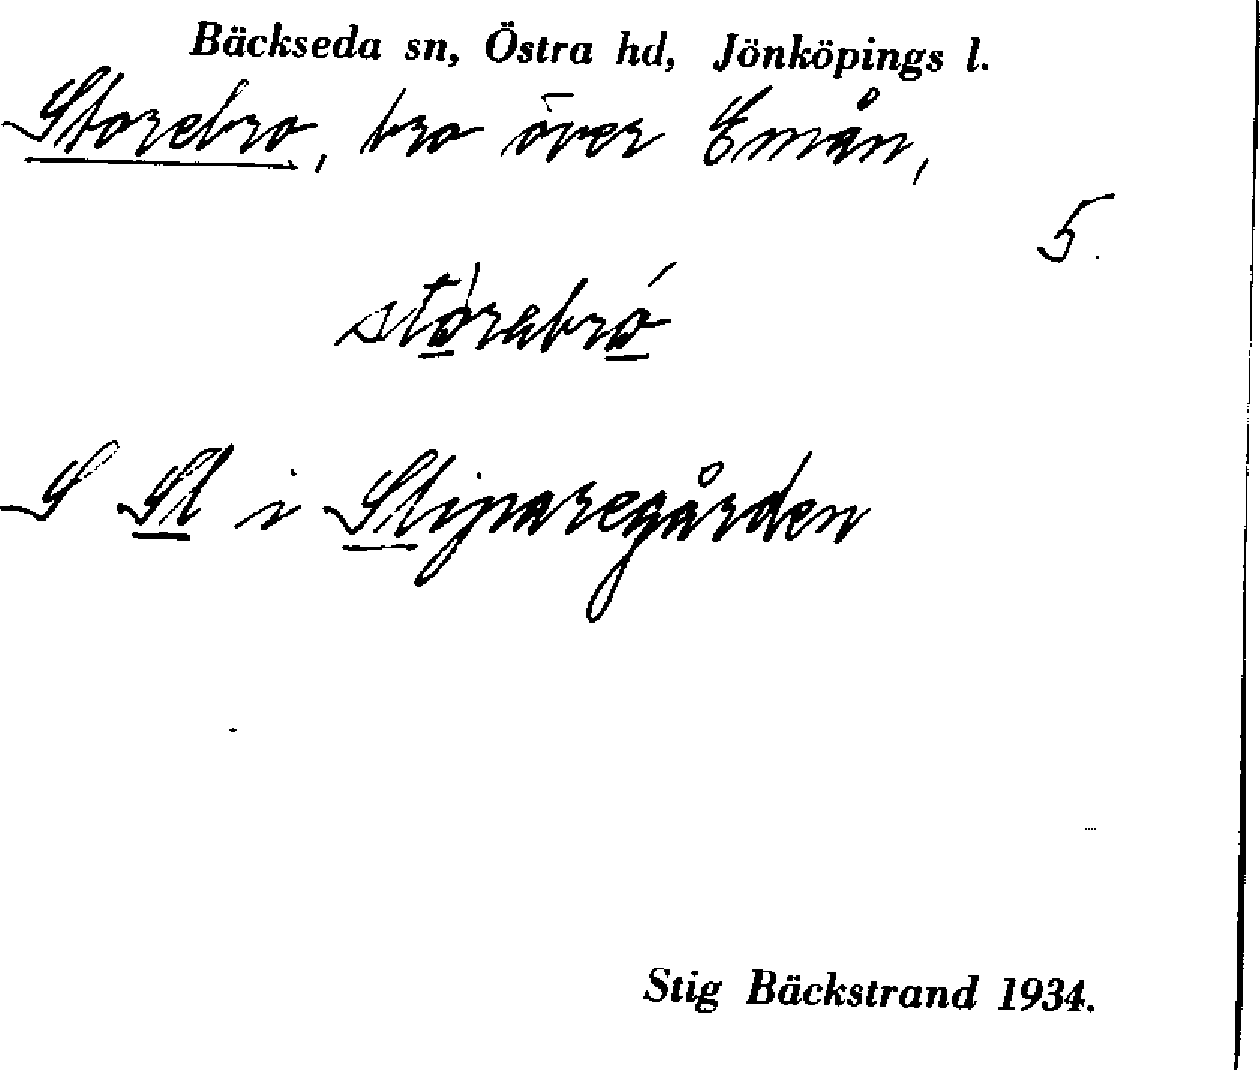 Bäckseda sn, Östra hd, Jönköpings l.
Storebro, bro över Emån,
5.
storebro
S St i Stiparegården
Stig Bäckstrand 1934.